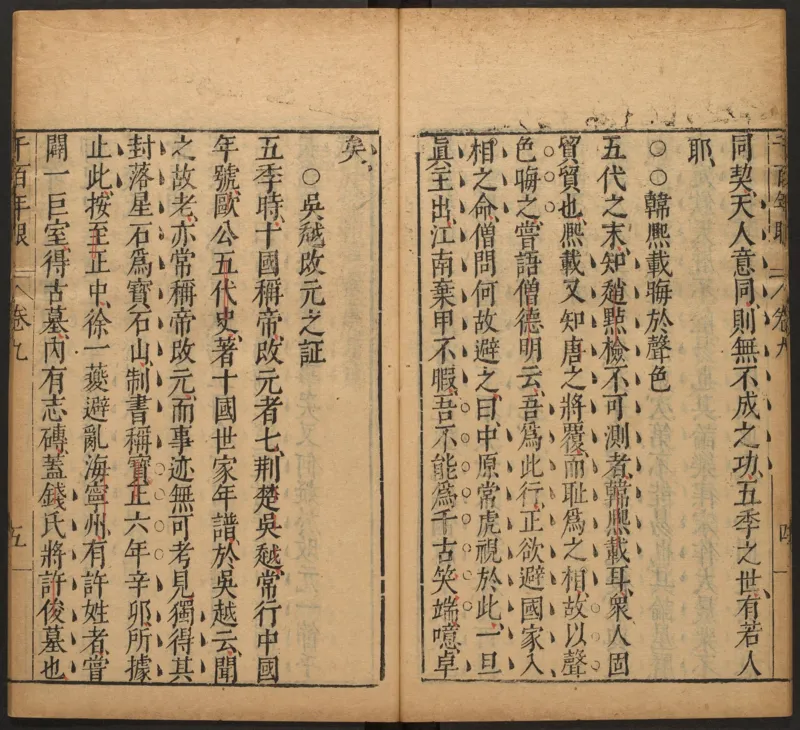 同契天人意同則無不成之功五季之世有若人
耶
○○韓熈載晦於聲色
五代之末知趙㸃檢不可測者韓熈載耳衆人固
貿貿也熈載又知唐之將覆而耻爲之相故以聲
色晦之嘗語僧德明云吾爲此行正欲避國家入
相之命僧問何故避之曰中原常虎視於此一旦
眞主出江南棄甲不暇吾不能爲千古笑端噫卓
矣
○吳越改元之証
五季時十國稱帝改元者七荆楚吳越常行中國
年號歐公五代史著十國世家年譜於吳越云聞
之故老亦常稱帝改元而事迹無可考見獨得其
封落星石爲寶石山制書稱寶正六年辛卯所據
止此按至正中徐一夔避亂海寧州有許姓者嘗
闢一巨室得古墓內有志磚蓋錢氏將許俊墓也
千百年眼 卷九 五